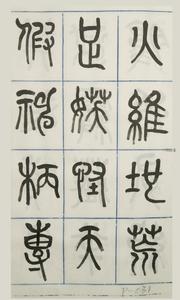 火維地荒
足妖怪天
假神柄專
P-031